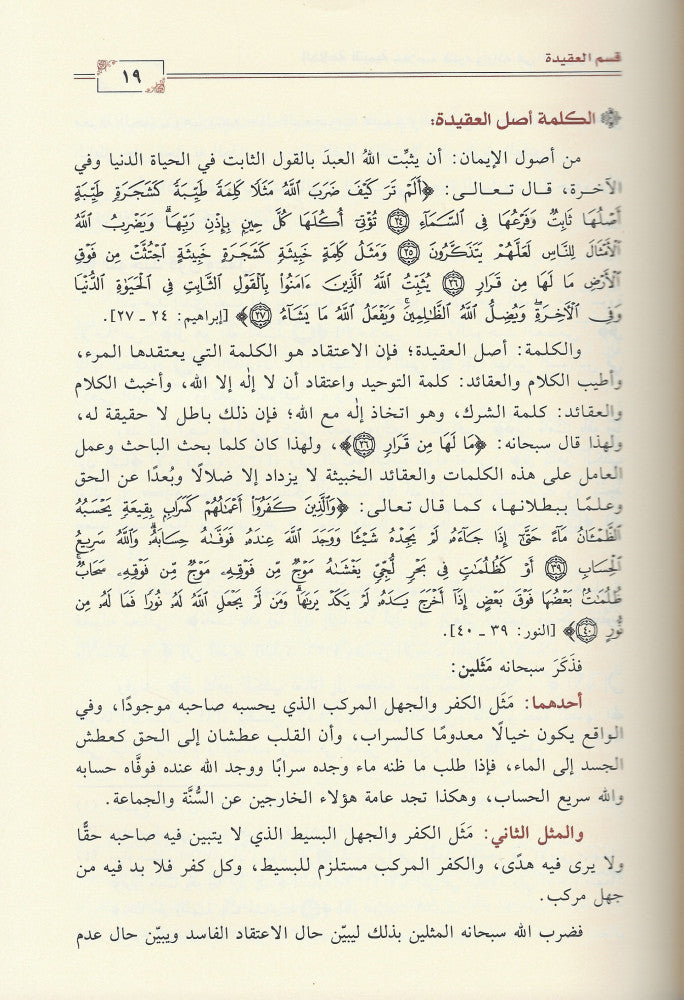 قسم العقيدة
١٩
الكلمة أصل العقيدة:
من أصول الإيمان: أن يثبِّت اللهُ العبدَ بالقول الثابت في الحياة الدنيا وفي
الآخرة، قال تعالى: ﴿أَلَمْ تَرَ كَيْفَ ضَرَبَ ٱللَّهُ مَثَلًا كَلِمَةً طَيِّبَةً كَشَجَرَةٍ طَيِّبَةٍ
أَصْلُهَا ثَابِتٌ وَفَرْعُهَا فِى ٱلسَّمَآءِ ۝٢٤ تُؤْتِىٓ أُكُلَهَا كُلَّ حِينٍۭ بِإِذْنِ رَبِّهَا ۗ وَيَضْرِبُ ٱللَّهُ
ٱلْأَمْثَالَ لِلنَّاسِ لَعَلَّهُمْ يَتَذَكَّرُونَ ۝٢٥ وَمَثَلُ كَلِمَةٍ خَبِيثَةٍ كَشَجَرَةٍ خَبِيثَةٍ ٱجْتُثَّتْ مِن فَوْقِ
ٱلْأَرْضِ مَا لَهَا مِن قَرَارٍ ۝٢٦ يُثَبِّتُ ٱللَّهُ ٱلَّذِينَ ءَامَنُوا۟ بِٱلْقَوْلِ ٱلثَّابِتِ فِى ٱلْحَيَوٰةِ ٱلدُّنْيَا
وَفِى ٱلْءَاخِرَةِ ۖ وَيُضِلُّ ٱللَّهُ ٱلظَّٰلِمِينَ ۚ وَيَفْعَلُ ٱللَّهُ مَا يَشَآءُ ۝٢٧﴾ [إبراهيم: ٢٤ ـ ٢٧].
والكلمة: أصل العقيدة؛ فإن الاعتقاد هو الكلمة التي يعتقدها المرء،
وأطيب الكلام والعقائد: كلمة التوحيد واعتقاد أن لا إلٰه إلا الله، وأخبث الكلام
والعقائد: كلمة الشرك، وهو اتخاذ إلٰه مع الله؛ فإن ذلك باطل لا حقيقة له،
ولهذا قال سبحانه: ﴿مَا لَهَا مِن قَرَارٍ ۝٢٦﴾، ولهذا كان كلما بحث الباحث وعمل
العامل على هذه الكلمات والعقائد الخبيثة لا يزداد إلا ضلالًا وبُعدًا عن الحق
وعلمًا ببطلانها، كما قال تعالى: ﴿وَٱلَّذِينَ كَفَرُوٓا۟ أَعْمَٰلُهُمْ كَسَرَابٍۭ بِقِيعَةٍ يَحْسَبُهُ
ٱلظَّمْـَٔانُ مَآءً حَتَّىٰٓ إِذَا جَآءَهُۥ لَمْ يَجِدْهُ شَيْـًٔا وَوَجَدَ ٱللَّهَ عِندَهُۥ فَوَفَّىٰهُ حِسَابَهُۥ ۗ وَٱللَّهُ سَرِيعُ
ٱلْحِسَابِ ۝٣٩ أَوْ كَظُلُمَٰتٍ فِى بَحْرٍ لُّجِّىٍّ يَغْشَىٰهُ مَوْجٌ مِّن فَوْقِهِۦ مَوْجٌ مِّن فَوْقِهِۦ سَحَابٌ ۚ
ظُلُمَٰتٌۢ بَعْضُهَا فَوْقَ بَعْضٍ إِذَآ أَخْرَجَ يَدَهُۥ لَمْ يَكَدْ يَرَىٰهَا ۗ وَمَن لَّمْ يَجْعَلِ ٱللَّهُ لَهُۥ نُورًا فَمَا لَهُۥ مِن
نُّورٍ ۝٤٠﴾ [النور: ٣٩ ـ ٤٠].
فذَكَرَ سبحانه مَثَلين:
أحدهما: مَثَل الكفر والجهل المركب الذي يحسبه صاحبه موجودًا، وفي
الواقع يكون خيالًا معدومًا كالسراب، وأن القلب عطشان إلى الحق كعطش
الجسد إلى الماء، فإذا طلب ما ظنه ماء وجده سرابًا ووجد الله عنده فوفَّاه حسابه
والله سريع الحساب، وهكذا تجد عامة هؤلاء الخارجين عن السُّنَّة والجماعة.
والمثل الثاني: مَثَل الكفر والجهل البسيط الذي لا يتبين فيه صاحبه حقًّا
ولا يرى فيه هدًى، والكفر المركب مستلزم للبسيط، وكل كفر فلا بد فيه من
جهل مركب.
فضرب الله سبحانه المثلين بذلك ليبيّن حال الاعتقاد الفاسد ويبيّن حال عدم